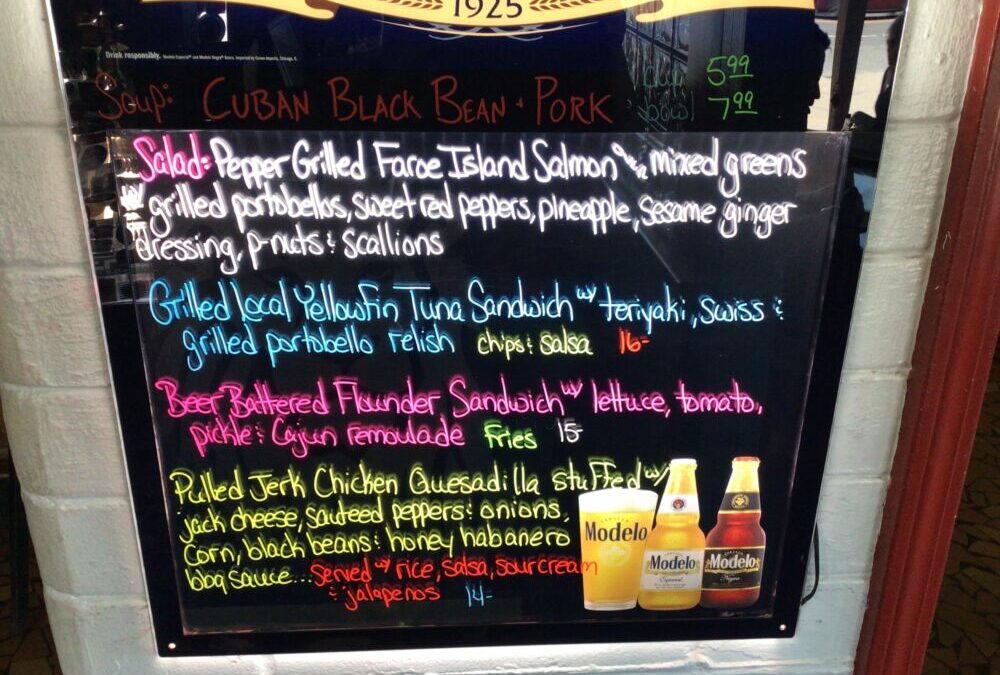 1925
Drink responsibly.
Soup: CUBAN BLACK BEAN + PORK cup 5.99
bowl 7.99
Salad: Pepper Grilled Faroe Island Salmon over mixed greens
w/ grilled portobellos, sweet red peppers, pineapple, sesame ginger
dressing, p-nuts & scallions
Grilled Local Yellowfin Tuna Sandwich w/ teriyaki, swiss &
grilled portobello relish chips & salsa 16-
Beer Battered Flounder Sandwich w/ lettuce, tomato,
pickle & Cajun remoulade fries 15-
Pulled Jerk Chicken Quesadilla stuffed w/
jack cheese, sauteed peppers & onions,
corn, black beans & honey habanero
bbq sauce... served w/ rice, salsa, sour cream
& jalapenos 14-
Modelo
Modelo
Especial
Modelo
Negra